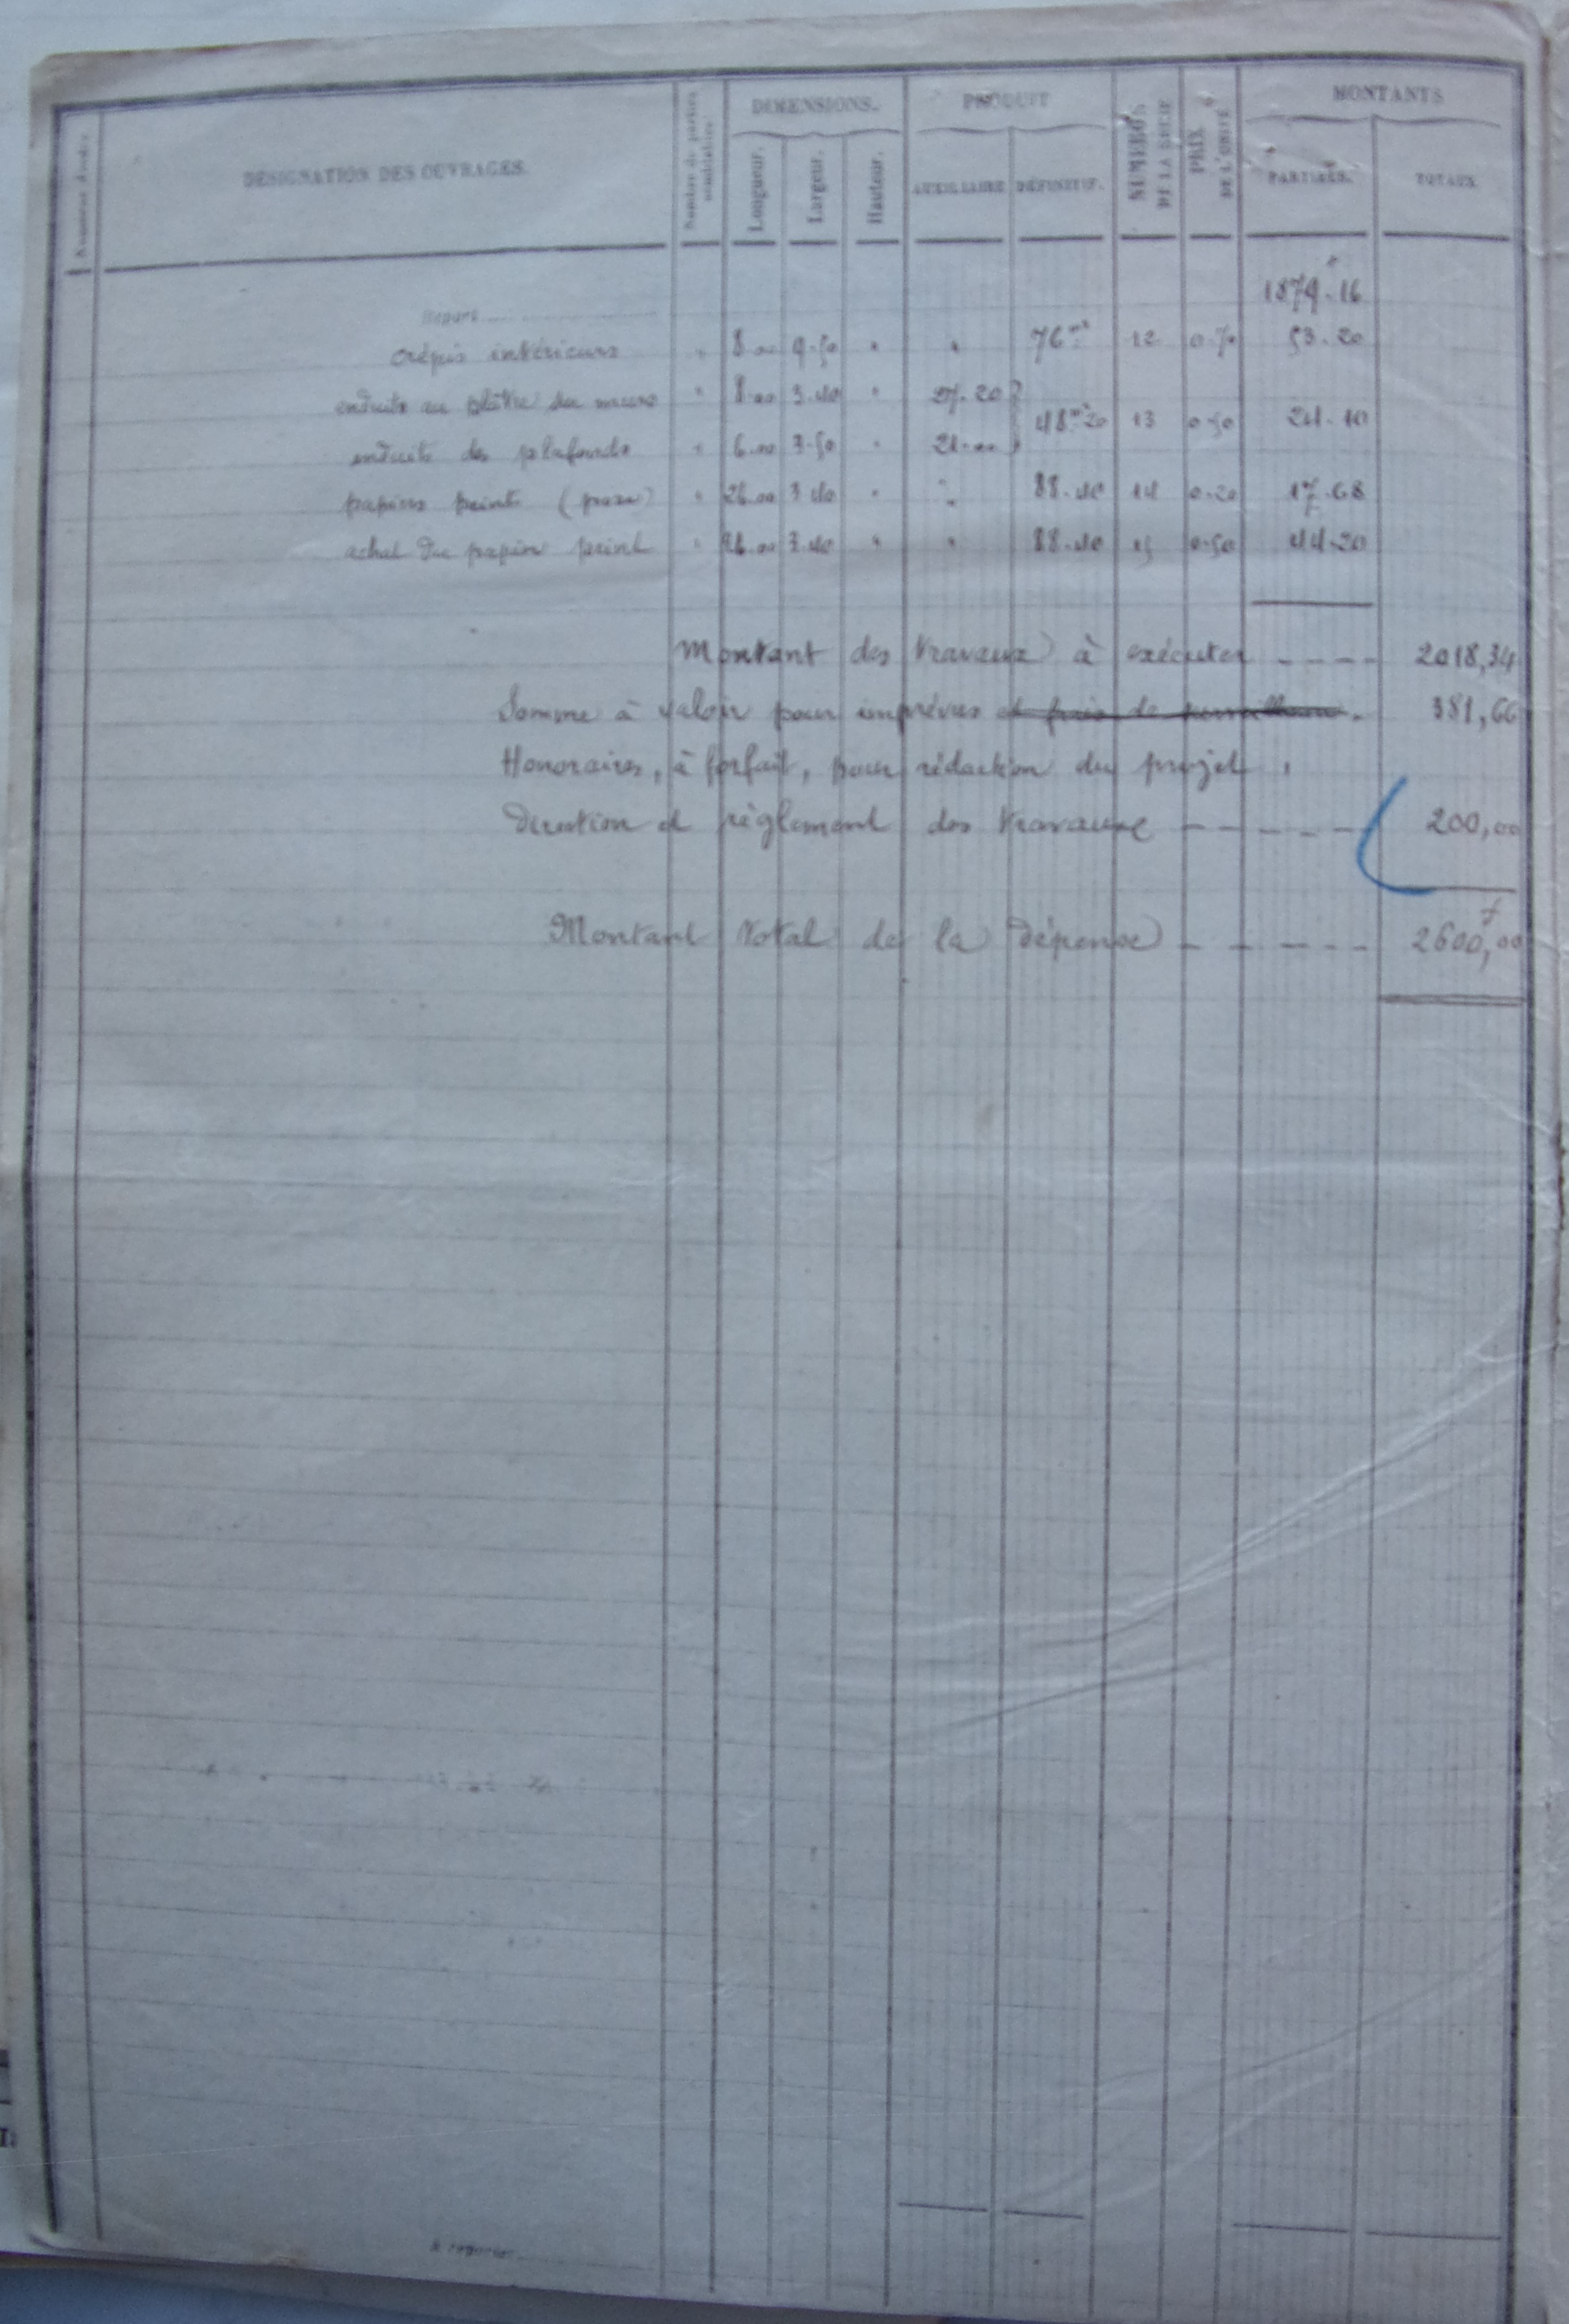 Numéros d'ordre
DÉSIGNATION DES OUVRAGES.
Nombre de parties semblables
DIMENSIONS.
Longueur.
Largeur.
Hauteur.
PRODUIT
AUXILIAIRE
DÉFINITIF.
NUMÉROS DE LA SÉRIE
PRIX DE L'UNITÉ
MONTANTS
PARTIELS.
TOTAUX
Report 1879.16
crépis intérieurs " 8.00 9.50 " " 76 m² 12 0.70 53.20
enduits au plâtre des murs " 8.00 3.40 " 27.20
48 m² 20 13 0.50 24.10
enduits des plafonds " 6.00 3.50 " 21.00
papiers peints (pose) " 26.00 3.40 " " 88.40 14 0.20 17.68
achat du papier peint " 26.00 3.40 " " 88.40 15 0.50 44.20
Montant des travaux à exécuter ---- 2018,34
Somme à valoir pour imprévus et frais de surveillance. 381,66
Honoraires, à forfait, pour rédaction du projet,
direction et règlement des travaux ----- 200,00
Montant total de la dépense ----- 2600,00 f
A reporter